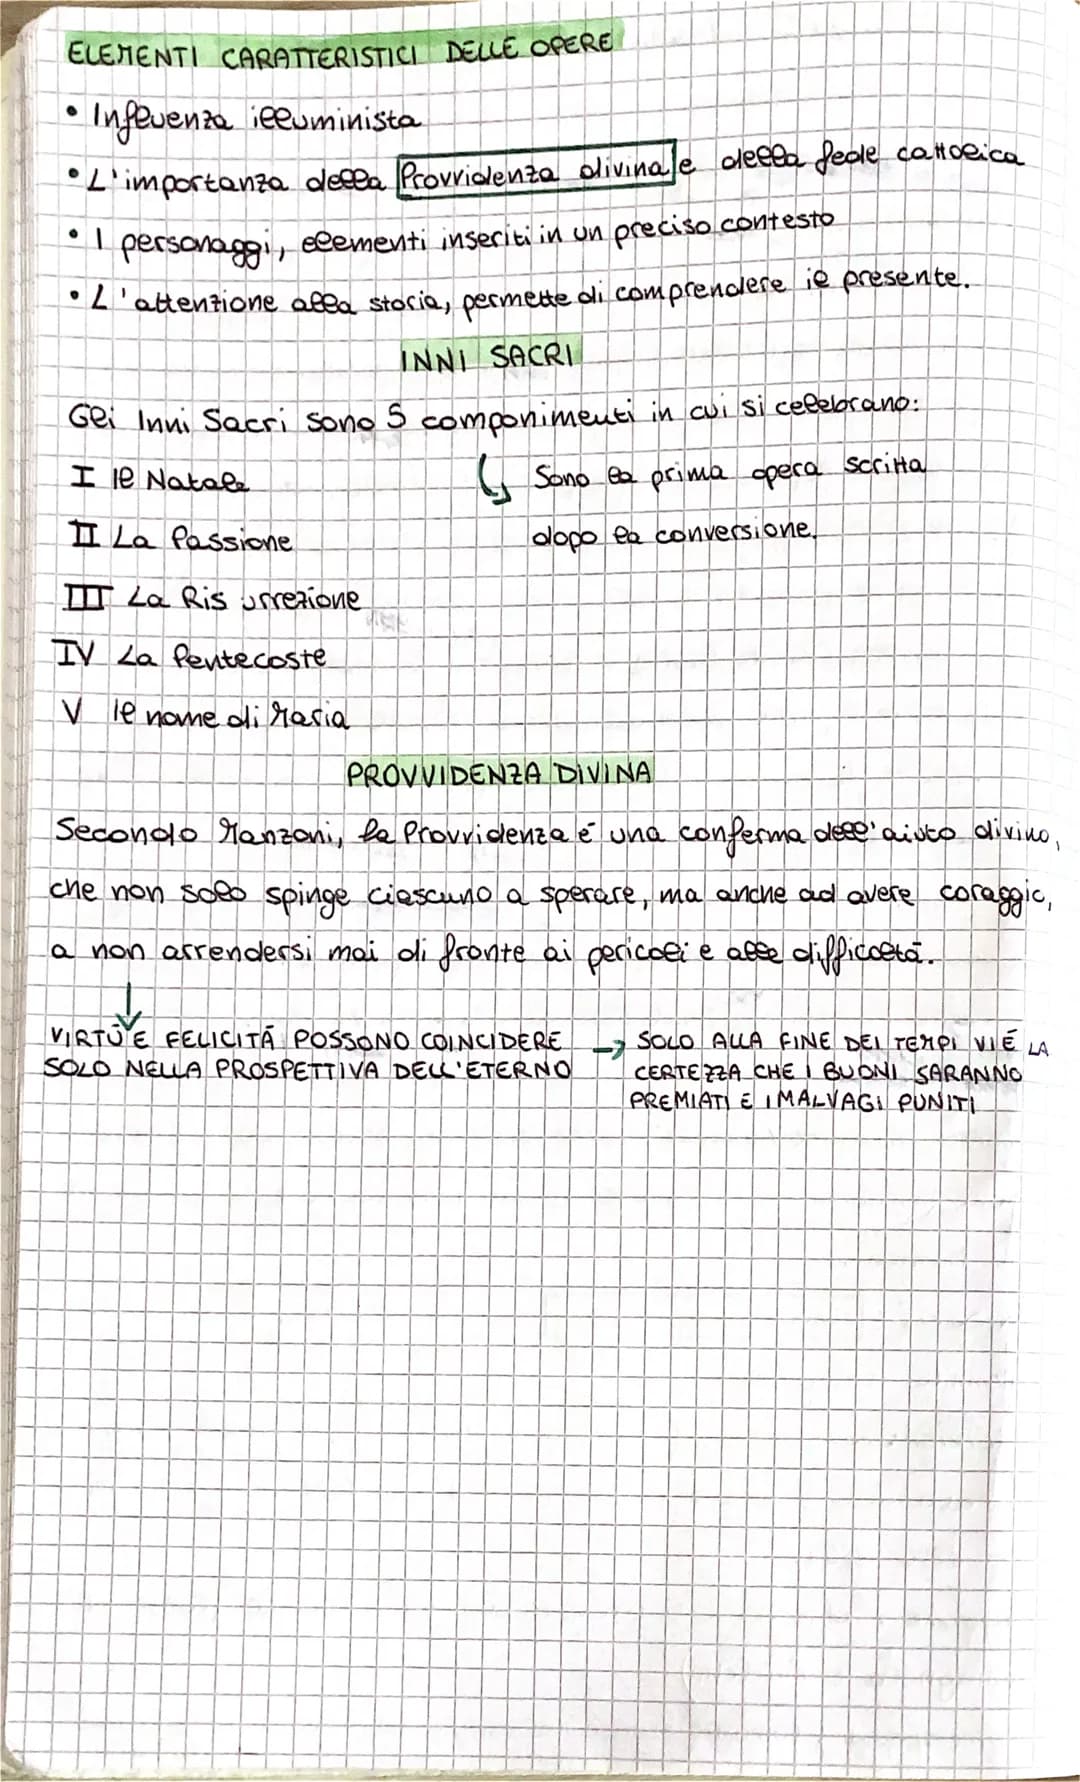 ELEMENTI CARATTERISTICI DELLE OPERE
• Influenza illuminista
• L'importanza della Provvidenza divina e della fede cattolica
• I personaggi, elementi inseriti in un preciso contesto
• L'attenzione alla storia, permette di comprendere il presente.
INNI SACRI
Gli Inni Sacri sono 5 componimenti in cui si celebrano:
I Il Natale
↳ Sono la prima opera scritta
II La Passione
dopo la conversione.
III La Ris urrezione
IV La Pentecoste
V Il nome di Maria
PROVVIDENZA DIVINA
Secondo Manzoni, la Provvidenza é una conferma dell'aiuto divino,
che non solo spinge ciascuno a sperare, ma anche ad avere coraggio,
a non arrendersi mai di fronte ai pericoli e alle difficoltá.
↓
VIRTÚ E FELICITÁ POSSONO COINCIDERE → SOLO ALLA FINE DEI TEMPI VI É LA
SOLO NELLA PROSPETTIVA DELL'ETERNO CERTEZZA CHE I BUONI SARANNO
PREMIATI E I MALVAGI PUNITI